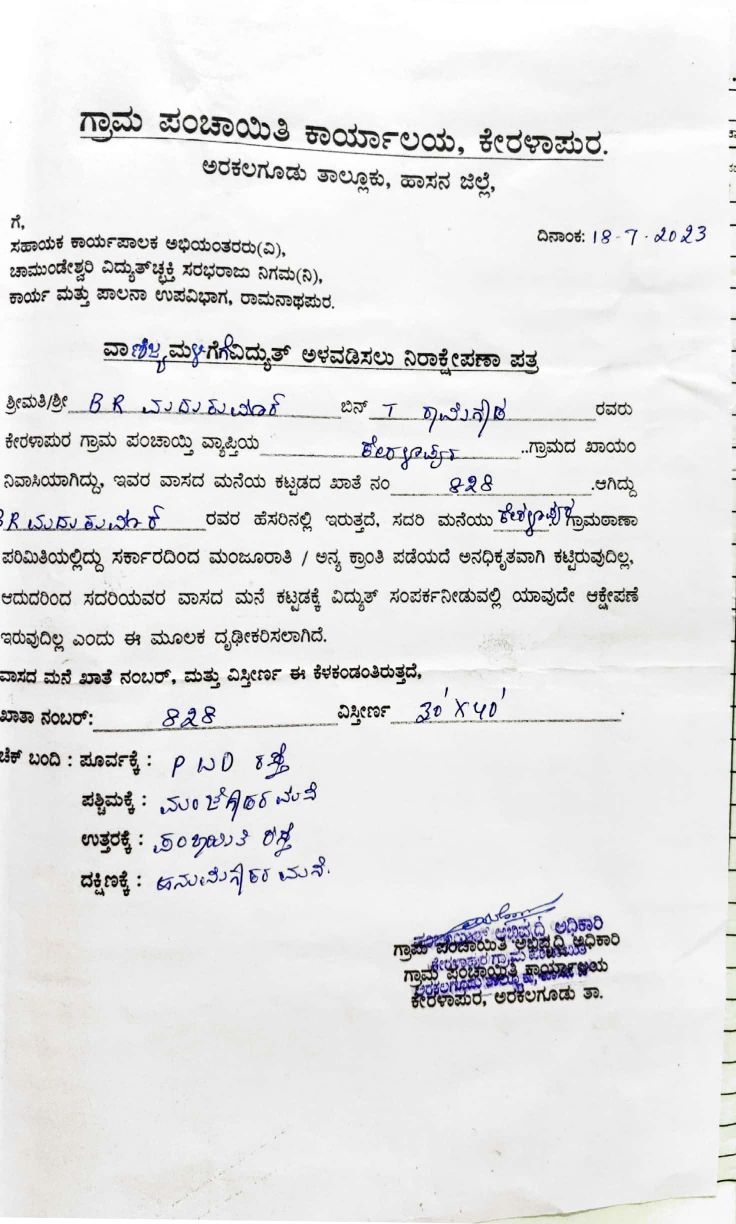 ಗ್ರಾಮ ಪಂಚಾಯಿತಿ ಕಾರ್ಯಾಲಯ, ಕೇರಳಾಪುರ.
ಅರಕಲಗೂಡು ತಾಲ್ಲೂಕು, ಹಾಸನ ಜಿಲ್ಲೆ,
ಗೆ,
ದಿನಾಂಕ: 18-7-2023
ಸಹಾಯಕ ಕಾರ್ಯಪಾಲಕ ಅಭಿಯಂತರರು(ವಿ),
ಚಾಮುಂಡೇಶ್ವರಿ ವಿದ್ಯುತ್‌ಚ್ಛಕ್ತಿ ಸರಭರಾಜು ನಿಗಮ(ನಿ),
ಕಾರ್ಯ ಮತ್ತು ಪಾಲನಾ ಉಪವಿಭಾಗ, ರಾಮನಾಥಪುರ.
ವಾಣಿಜ್ಯ ಮಳಿಗೆಗೆ ವಿದ್ಯುತ್ ಅಳವಡಿಸಲು ನಿರಾಕ್ಷೇಪಣಾ ಪತ್ರ
ಶ್ರೀಮತಿ/ಶ್ರೀ BR ಮದುಕುಮಾರ್ ಬಿನ್ T ರಾಮೇಗೌಡ ರವರು
ಕೇರಳಾಪುರ ಗ್ರಾಮ ಪಂಚಾಯ್ತಿ ವ್ಯಾಪ್ತಿಯ ಕೇರಳಾಪುರ ..ಗ್ರಾಮದ ಖಾಯಂ
ನಿವಾಸಿಯಾಗಿದ್ದು, ಇವರ ವಾಸದ ಮನೆಯ ಕಟ್ಟಡದ ಖಾತೆ ನಂ 828 .ಆಗಿದ್ದು
BR ಮದುಕುಮಾರ್ ರವರ ಹೆಸರಿನಲ್ಲಿ ಇರುತ್ತದೆ, ಸದರಿ ಮನೆಯು ಕೇರಳಾಪುರ ಗ್ರಾಮಠಾಣಾ
ಪರಿಮಿತಿಯಲ್ಲಿದ್ದು ಸರ್ಕಾರದಿಂದ ಮಂಜೂರಾತಿ / ಅನ್ಯ ಕ್ರಾಂತಿ ಪಡೆಯದೆ ಅನಧಿಕೃತವಾಗಿ ಕಟ್ಟಿರುವುದಿಲ್ಲ,
ಆದುದರಿಂದ ಸದರಿಯವರ ವಾಸದ ಮನೆ ಕಟ್ಟಡಕ್ಕೆ ವಿದ್ಯುತ್ ಸಂಪರ್ಕನೀಡುವಲ್ಲಿ ಯಾವುದೇ ಆಕ್ಷೇಪಣೆ
ಇರುವುದಿಲ್ಲ ಎಂದು ಈ ಮೂಲಕ ದೃಢೀಕರಿಸಲಾಗಿದೆ.
ವಾಸದ ಮನೆ ಖಾತೆ ನಂಬರ್, ಮತ್ತು ವಿಸ್ತೀರ್ಣ ಈ ಕೆಳಕಂಡಂತಿರುತ್ತದೆ,
ಖಾತಾ ನಂಬರ್: 828 ವಿಸ್ತೀರ್ಣ 30'X40'.
ಚೆಕ್ ಬಂದಿ : ಪೂರ್ವಕ್ಕೆ : PWD ರಸ್ತೆ
ಪಶ್ಚಿಮಕ್ಕೆ : ಮಂಜೇಗೌಡರ ಮನೆ
ಉತ್ತರಕ್ಕೆ : ಪಂಚಾಯಿತಿ ರಸ್ತೆ
ದಕ್ಷಿಣಕ್ಕೆ : ಹನುಮೇಗೌಡರ ಮನೆ.
ಪಂಚಾಯತ್ ಅಭಿವೃದ್ಧಿ ಅಧಿಕಾರಿ
ಗ್ರಾಮ ಪಂಚಾಯಿತಿ ಅಭಿವೃದ್ಧಿ ಅಧಿಕಾರಿ
ಕೇರಳಾಪುರ ಗ್ರಾಮ ಪಂಚಾಯಿತಿ
ಗ್ರಾಮ ಪಂಚಾಯಿತಿ ಕಾರ್ಯಾಲಯ
ಅರಕಲಗೂಡು ತಾಲ್ಲೂಕು,
ಕೇರಳಾಪುರ, ಅರಕಲಗೂಡು ತಾ.